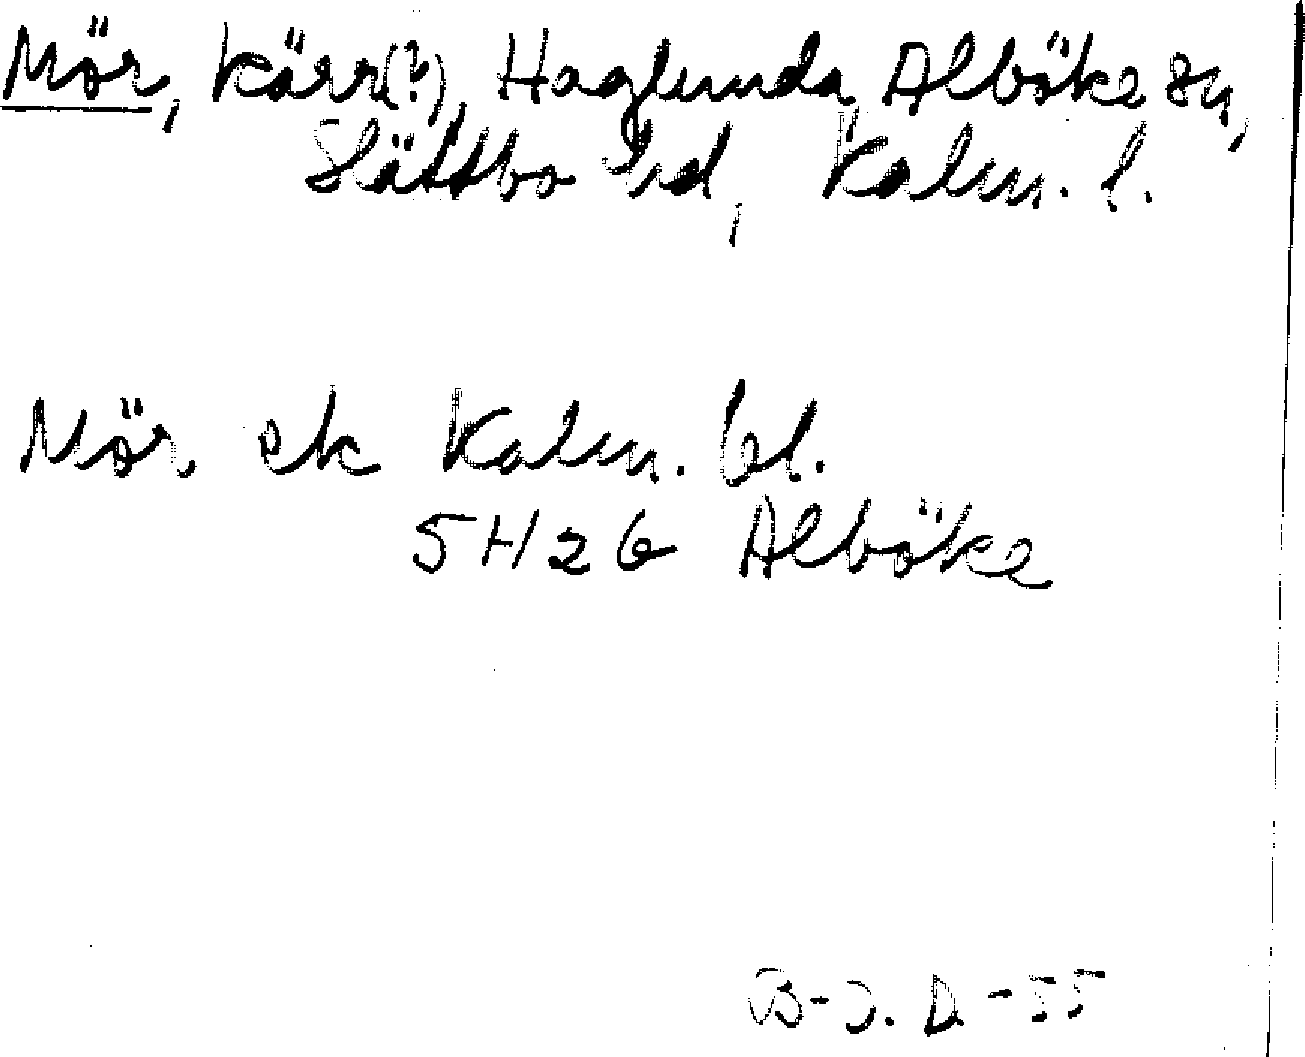 Mör, kärr(?), Haglunda, Alböke sn,
Slättbo hd, Kalm. l.
Mör. ek Kalm. bl.
5H2b Alböke
B-J. D. -55